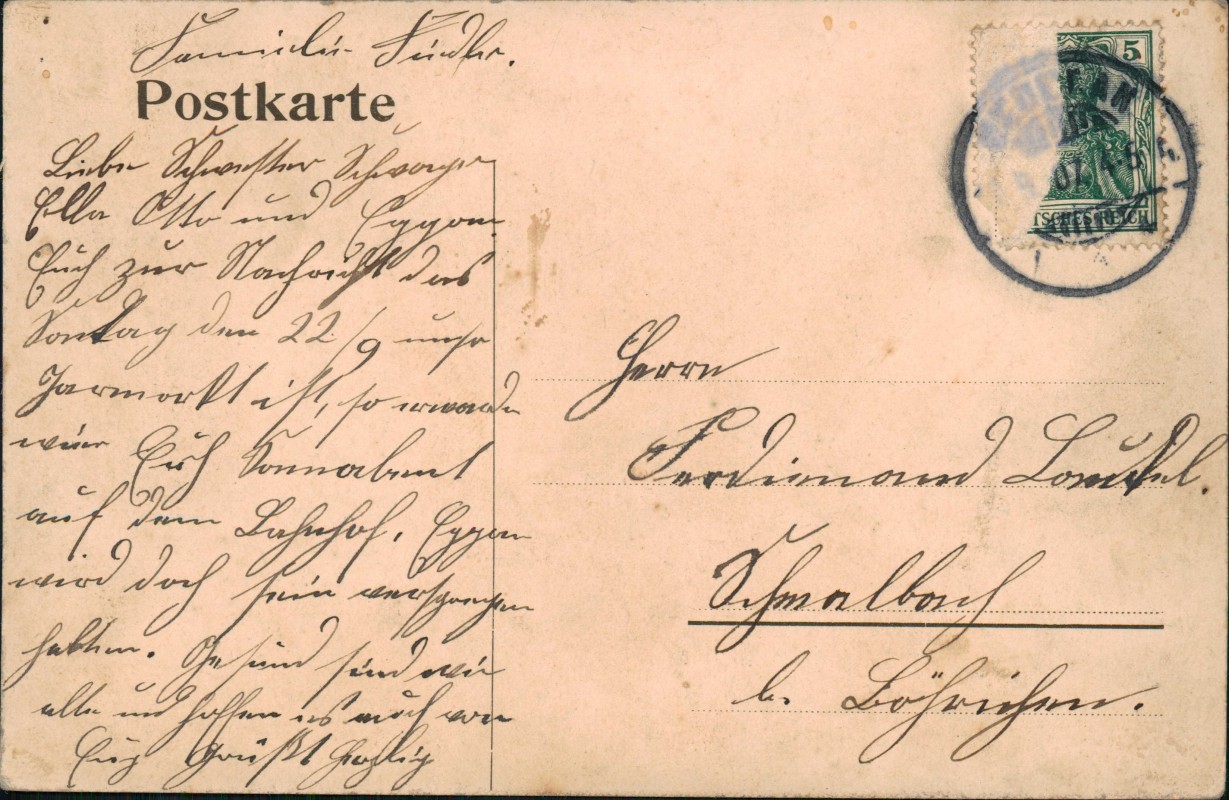 Familie Fiedler.
Postkarte
Liebe Schwester Schwager
Ella Otto und Eggon.
Euch zur Nachricht das
Sontag den 22/9 unser
Jarmarkt ist, so erwarden
wier Euch Sonnabent
auf dem Bahnhof, Eggon
wird doch sein versprechen
halten. Gesund sind wir
alle und hoffen es auch von
Euch Grüßt herzlig
5
07. 4-5
TSCHES REICH
Herrn
Ferdinand
Schmalbach
b. Böhrichen.